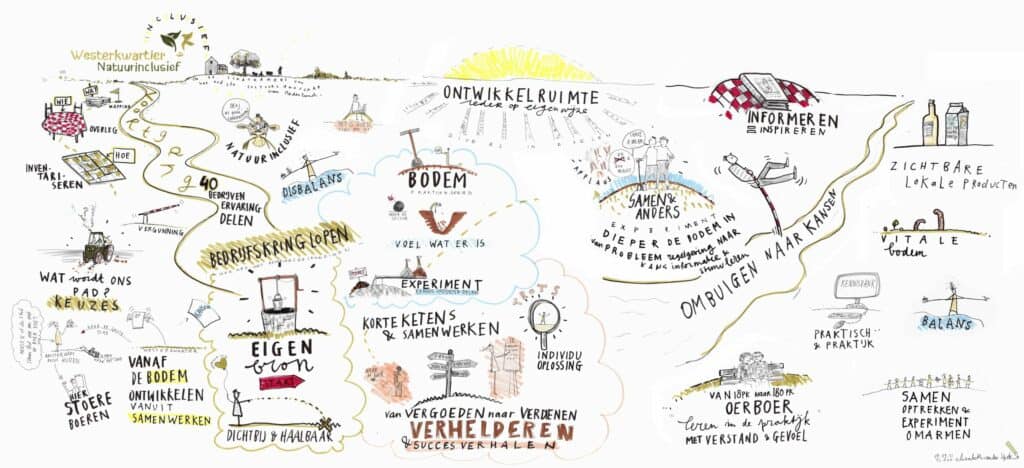 INCLUSIEF
Westerkwartier
Natuurinclusief
WIE
WAT
OVERLEG
INVEN-
TARI-
SEREN
HOE
VERGUNNING
WAT wordt ONS
PAD?
KEUZES
HIER
STOERE
BOEREN
VANAF
DE BODEM
ONTWIKKELEN
VANUIT
SAMENWERKEN
40
BEDRIJVEN
ERVARING
DELEN
NATUURINCLUSIEF
DISBALANS
BEDRIJFSKRINGLOPEN
EIGEN
bron
START
DICHTBIJ & HAALBAAR
ONTWIKKELRUIMTE
ieder op eigen wijze
BODEM
VOEL WAT ER IS
EXPERIMENT
KORTE KETENS
& SAMENWERKEN
SPOTS
INDIVIDU
OPLOSSING
van VERGOEDEN naar VERDIENEN
VERHELDEREN
& SUCCESVERHALEN
APPLAUS
SAMEN &
ANDERS
EXPERIMENT
DIEPER DE BODEM IN
van PROBLEEM regelgeving NAAR
KANS informatie &
INFORMEREN
= INSPIREREN
OMBUIGEN NAAR KANSEN
ZICHTBARE
LOKALE PRODUCTEN
VITALE
bodem
KENNISBANK
PRAKTISCH
& PRAKTIJK
BALANS
VAN 18PK naar 180PK
OERBOER
leren in de praktijk
MET VERSTAND & GEVOEL
SAMEN
OPTREKKEN &
EXPERIMENT
OMARMEN